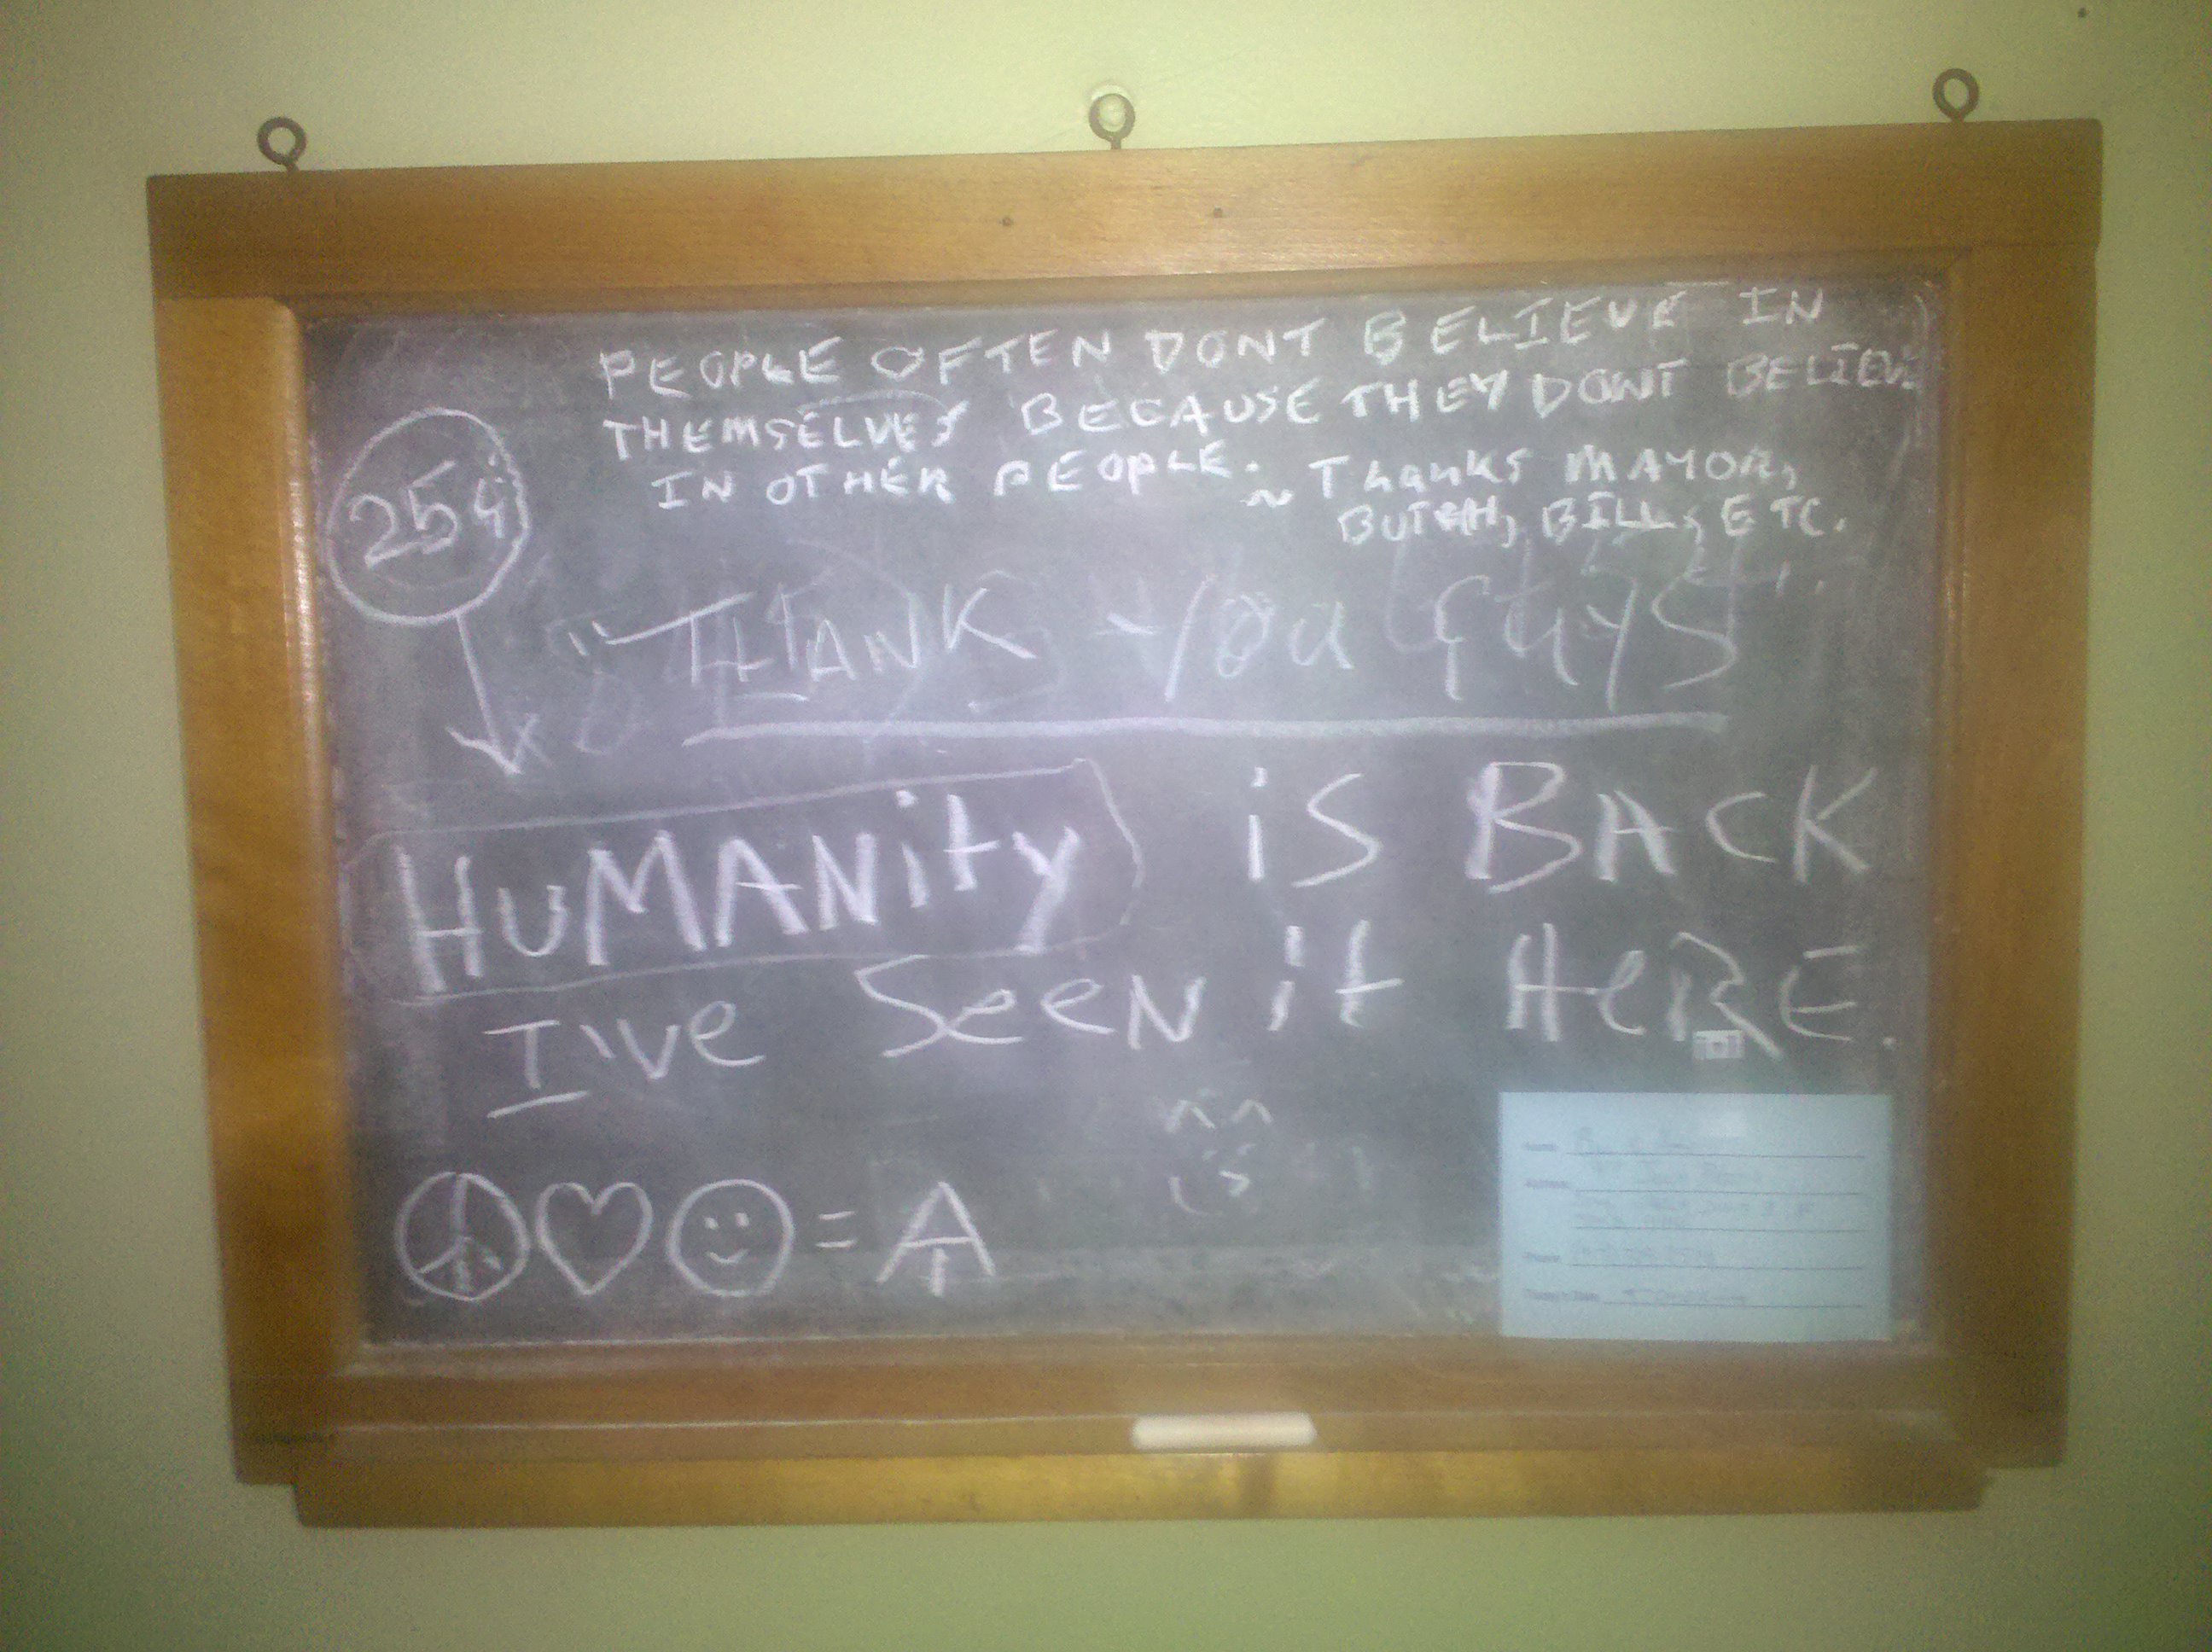 PEOPLE OFTEN DONT BELIEVE IN
THEMSELVES BECAUSE THEY DONT BELIEVE
IN OTHER PEOPLE. ~ Thanks MAYOR,
BUTCH, BILL, ETC.
"THANK YOU GUYS"
HUMANity is BACK
I've SeeN it HeRE.
= A
Name
Address
Phone
Today's Date